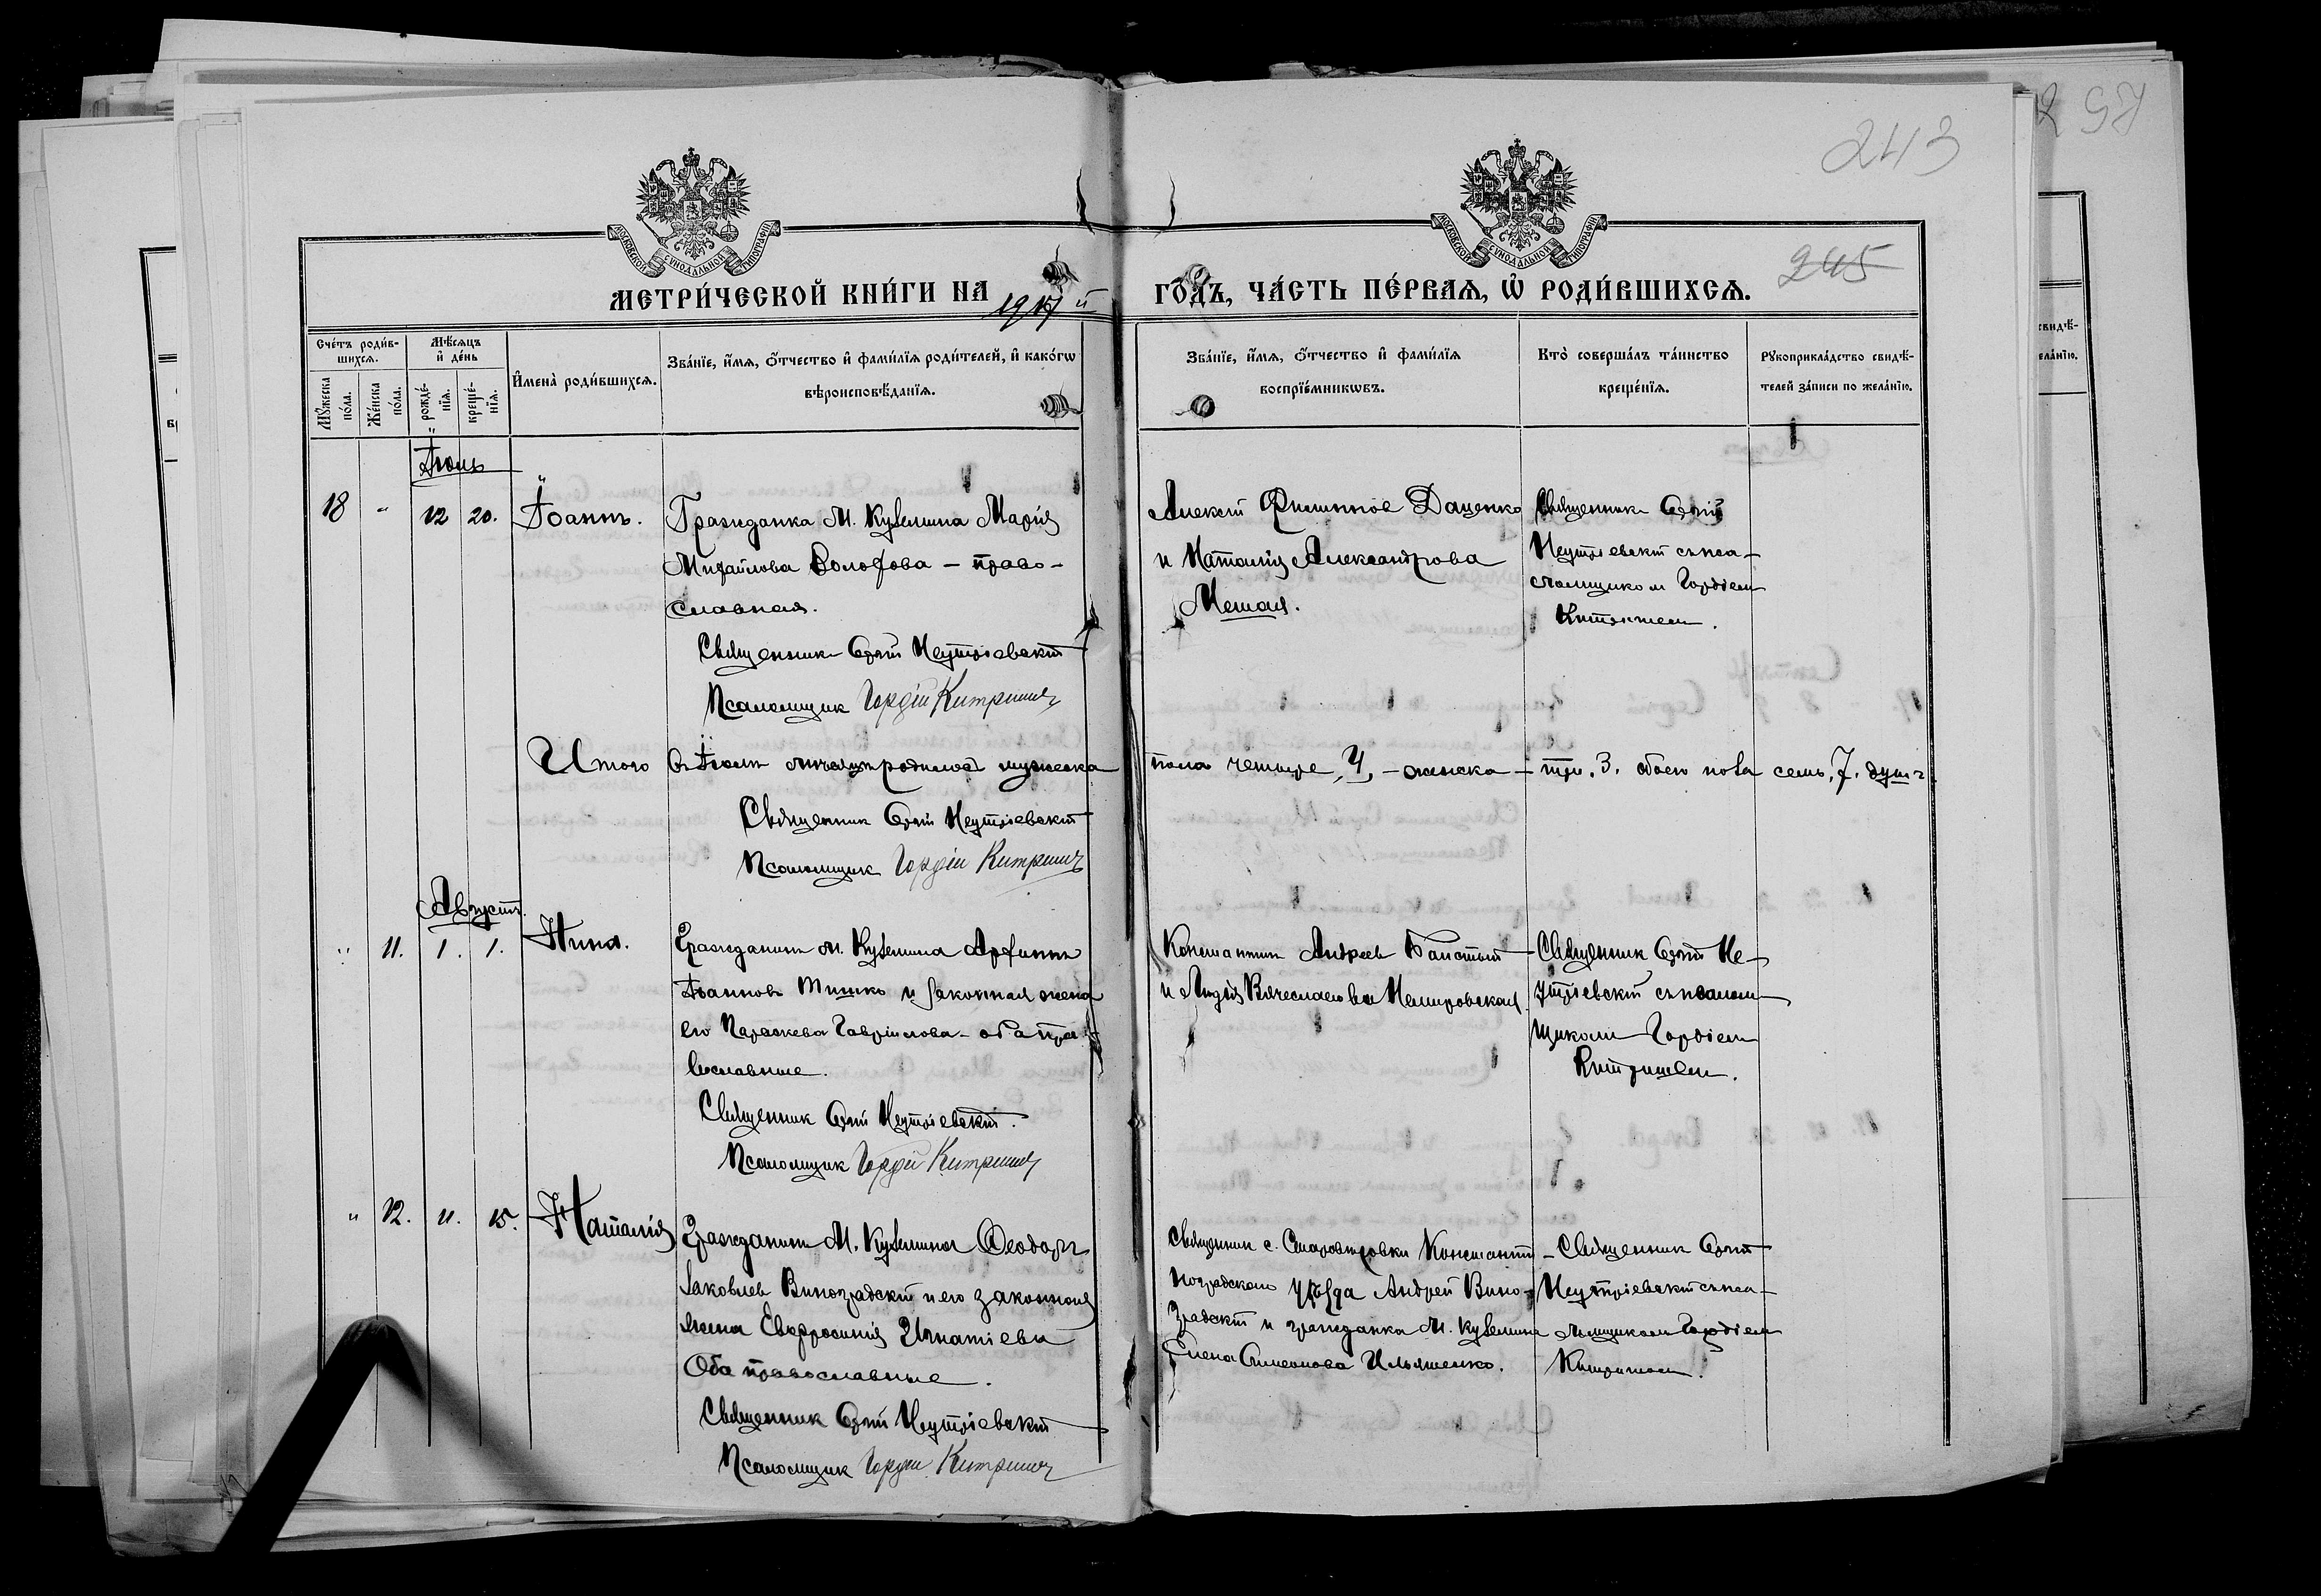 243
245
МОСКОВСКОЙ СѴНОДАЛЬНОЙ ТИПОГРАФІИ
МОСКОВСКОЙ СѴНОДАЛЬНОЙ ТИПОГРАФІИ
МЕТРИ́ЧЕСКОЙ КНИ́ГИ НА 1917 й ГО́ДЪ, ЧА́СТЬ ПЕ́РВАѦ, Ѡ҆ РОДИ́ВШИХСѦ.
Сче́тъ роди́в-
шихсѧ.
Мꙋ́жеска по́ла.
Же́нска по́ла.
Мѣ́сѧцъ
и҆ де́нь
рожде́-
нїѧ.
креще́-
нїѧ.
И҆мена̀ роди́вшихсѧ.
Зва́нїе, и҆́мѧ, ѻ҆́тчество и҆ фами́лїѧ роди́телей, и҆ како́гѡ
вѣроисповѣ́данїѧ.
Зва́нїе, и҆́мѧ, ѻ҆́тчество и҆ фами́лїѧ
воспрїе́мникѡвъ.
Кто̀ соверша́лъ та́инство
креще́нїѧ.
Рꙋкоприкла́дство свидѣ́-
телей за́писи по жела́нїю.
Іюль
18 " 12 20. Іоаннъ.
Гражданка М. Куземина Марія
Михайлова – право-
славная.
Священникъ Сергій Неутріевскій
Псаломщик Гордій Китриш
Алексій Филиппов Даценко
и Наталія Александрова
Священникъ Сергій
Неутріевскій съ пса-
ломщиком Гордіем
Итого въ Іюлѣ мѣсяцѣ родилось мужеска пола четыре, 4, – женска – три. 3. обоего пола семь, 7. душъ
Священник Сергій Неутріевскій
Псаломщик Гордій Китриш
Августъ.
" 11. 1. 1. Нина.
Гражданин М. Куземина
Іоаннов Тишко и законная жена
его Параскева Гавриилова – оба пра-
вославные.
Священник Сергій Неутріевскій.
Псаломщик Гордій Китриш
Константин Андреев
и Лидія Вячеславова Немировская
Священник Сергій Не-
утріевскій съ псалом-
щиком Гордіем
" 12. 11. 15. Наталія
Гражданин М. Куземина Ѳеодоръ
Іаковлев Виноградскій и его законная
жена Евфросинія Игнатіева
Оба православные.
Священник Сергій Неутріевскій
Псаломщик Гордій Китриш
Священник с. Староверовки Константи-
ноградскаго уѣзда Андрей Вино-
градскій и гражданка М. Куземина
Елена Симеонова Ильяшенко.
Священник Сергій
Неутріевскій съ пса-
ломщиком Гордіем